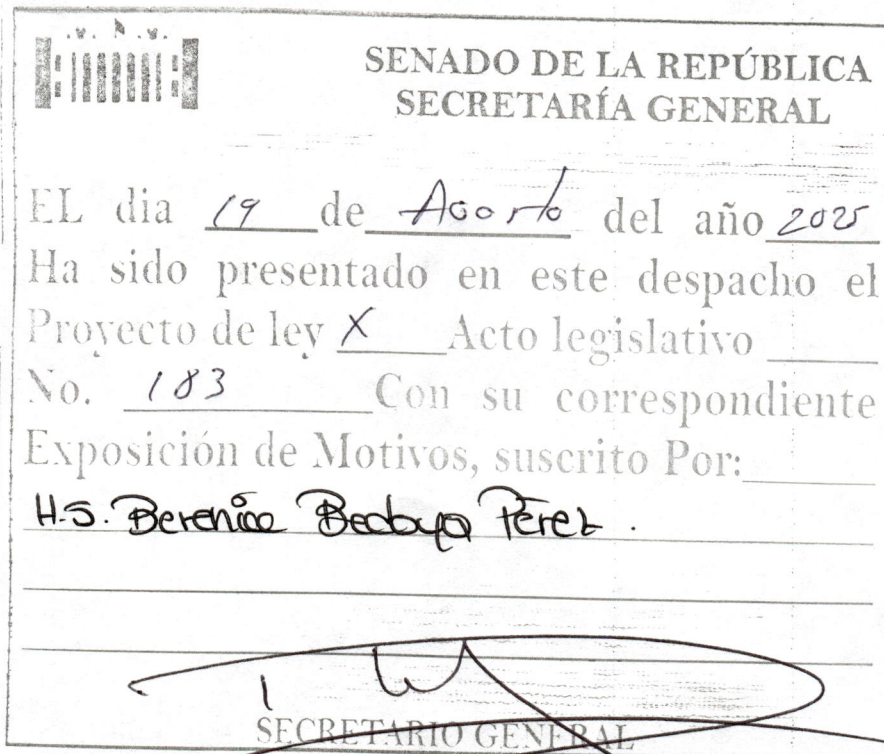 SENADO DE LA REPÚBLICA
SECRETARÍA GENERAL
EL dia 19 de Agosto del año 2025
Ha sido presentado en este despacho el
Proyecto de ley X Acto legislativo
No. 183 Con su correspondiente
Exposición de Motivos, suscrito Por:
H.S. Berenice Bedoya Pérez.
SECRETARIO GENERAL